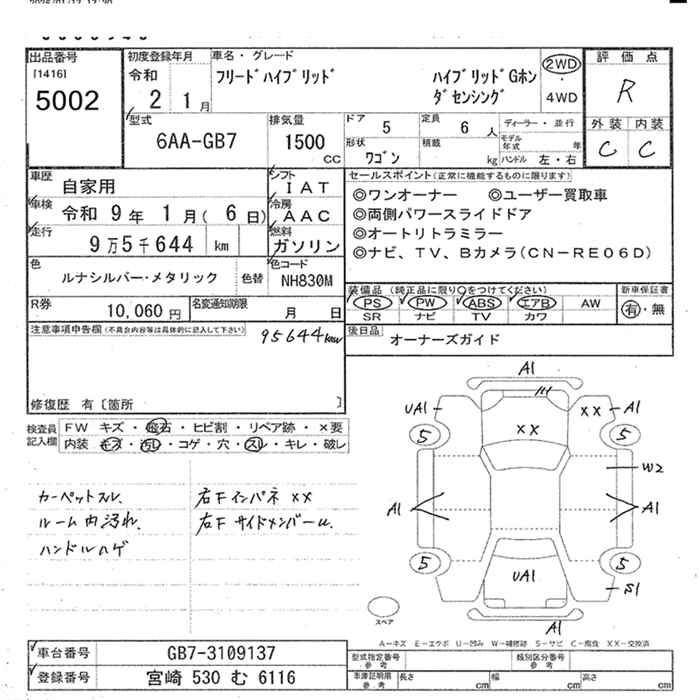 出品番号
[1416]
5002
初度登録年月
令和
2 1月
車名・グレード
フリードハイブリッド
ハイブリッドGホン
ダセンシング
2WD
・
4WD
評価点
R
外装 内装
C C
型式
6AA-GB7
排気量
1500
CC
ドア
5
定員
6人
ディーラー・並行
形状
ワゴン
積載
kg
モデル年式 年
ハンドル 左・右
車歴
自家用
シフト
IAT
車検
令和 9年 1月(6日)
冷房
AAC
走行
9万5千644 km
燃料
ガソリン
色
ルナシルバー・メタリック
色替
色コード
NH830M
R券
10,060円
名変通知期限
月 日
セールスポイント(正常に機能するものに限ります)
◎ワンオーナー ◎ユーザー買取車
◎両側パワースライドドア
◎オートリトラミラー
◎ナビ、TV、Bカメラ(CN-RE06D)
装備品(純正品に限り○をつけてください)
PS PW ABS エアB AW
SR ナビ TV カワ
新車保証書
有・無
後日品
オーナーズガイド
注意事項申告欄(不具合内容等は具体的に記入して下さい)
95644km
修復歴 有〔箇所 〕
検査員
記入欄
FW キズ・飛石・ヒビ割・リペア跡・×要
内装 キズ・汚レ・コゲ・穴・スレ・キレ・破レ
カーペットスレ
ルーム内汚れ
ハンドルハゲ
右Fインパネ ××
右Fサイドメンバーu
A1
UA1
××
××
A1
5
5
W2
A1
A1
5
5
UA1
S1
A1
スペア
A-キズ E-エクボ U-凹み W-補修跡 S-サビ C-腐食 XX-交換済
車台番号
GB7-3109137
登録番号
宮崎 530 む 6116
型式指定番号
参考
類別区分番号
参考
車庫証明用
参考
長さ cm
幅 cm
高さ cm